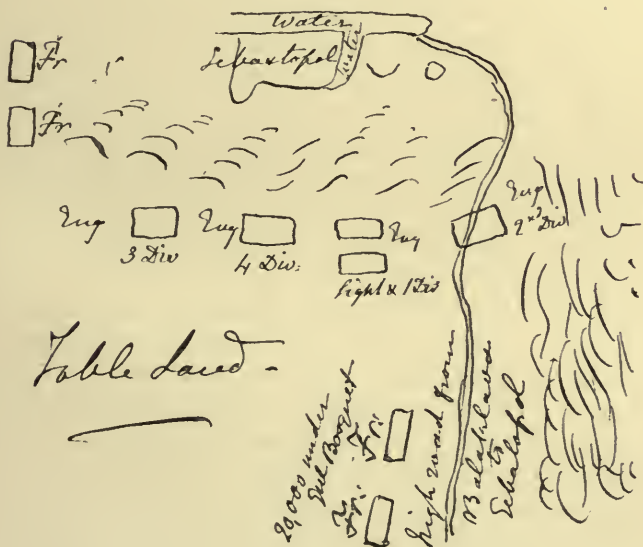 Water
Sebastopol
Water
Fr
Fr
Eng
3 Div
Eng
4 Div:
Eng
Light & 1 Div
Eng
2nd Div
Table Land -
20,000 under
Genl Bosquet
Fr:
Fr:
High road from
Balaklava
to
Sebastopol